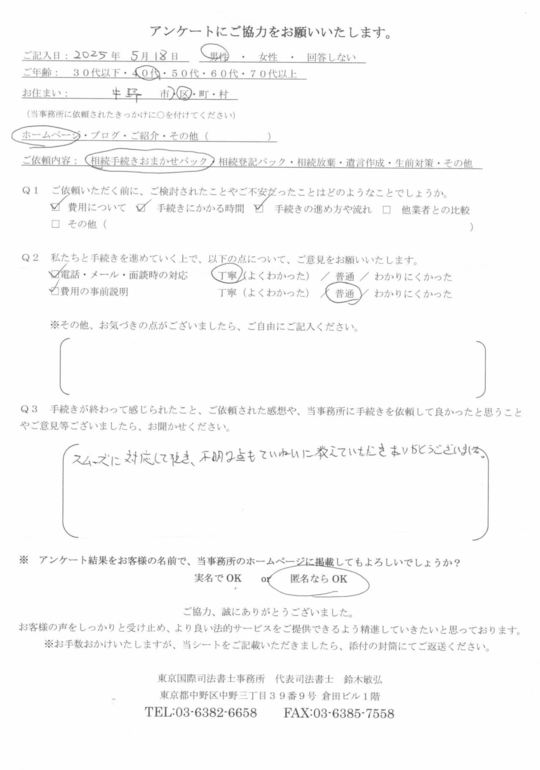 アンケートにご協力をお願いいたします。
ご記入日：2025年 5月18日 男性 ・ 女性 ・ 回答しない
ご年齢： ３０代以下・４０代・５０代・６０代・７０代以上
お住まい： 中野 市・区・町・村
（当事務所に依頼されたきっかけに○を付けてください）
ホームページ・ブログ・ご紹介・その他（ ）
ご依頼内容：相続手続きおまかせパック・相続登記パック・相続放棄・遺言作成・生前対策・その他
Ｑ１ ご依頼いただく前に、ご検討されたことやご不安だったことはどのようなことでしょうか。
☑ 費用について ☑ 手続きにかかる時間 ☑ 手続きの進め方や流れ □ 他業者との比較
□ その他（ ）
Ｑ２ 私たちと手続きを進めていく上で、以下の点について、ご意見をお願いいたします。
☑電話・メール・面談時の対応 丁寧（よくわかった） ／ 普通 ／ わかりにくかった
☑費用の事前説明 丁寧（よくわかった） ／ 普通 ／ わかりにくかった
※その他、お気づきの点がございましたら、ご自由にご記入ください。
Ｑ３ 手続きが終わって感じられたこと、ご依頼された感想や、当事務所に手続を依頼して良かったと思うこと
やご意見等ございましたら、お聞かせください。
スムーズに対応して頂き、不明な点もていねいに教えていただきありがとうございました。
※ アンケート結果をお客様の名前で、当事務所のホームページに掲載してもよろしいでしょうか？
実名で OK or 匿名なら OK
ご協力、誠にありがとうございました。
お客様の声をしっかりと受け止め、より良い法的サービスをご提供できるよう精進していきたいと思っております。
※お手数おかけいたしますが、当シートをご記載いただきましたら、添付の封筒にてご返送ください。
東京国際司法書士事務所 代表司法書士 鈴木敏弘
東京都中野区中野三丁目３９番９号 倉田ビル１階
TEL:03-6382-6658 FAX:03-6385-7558